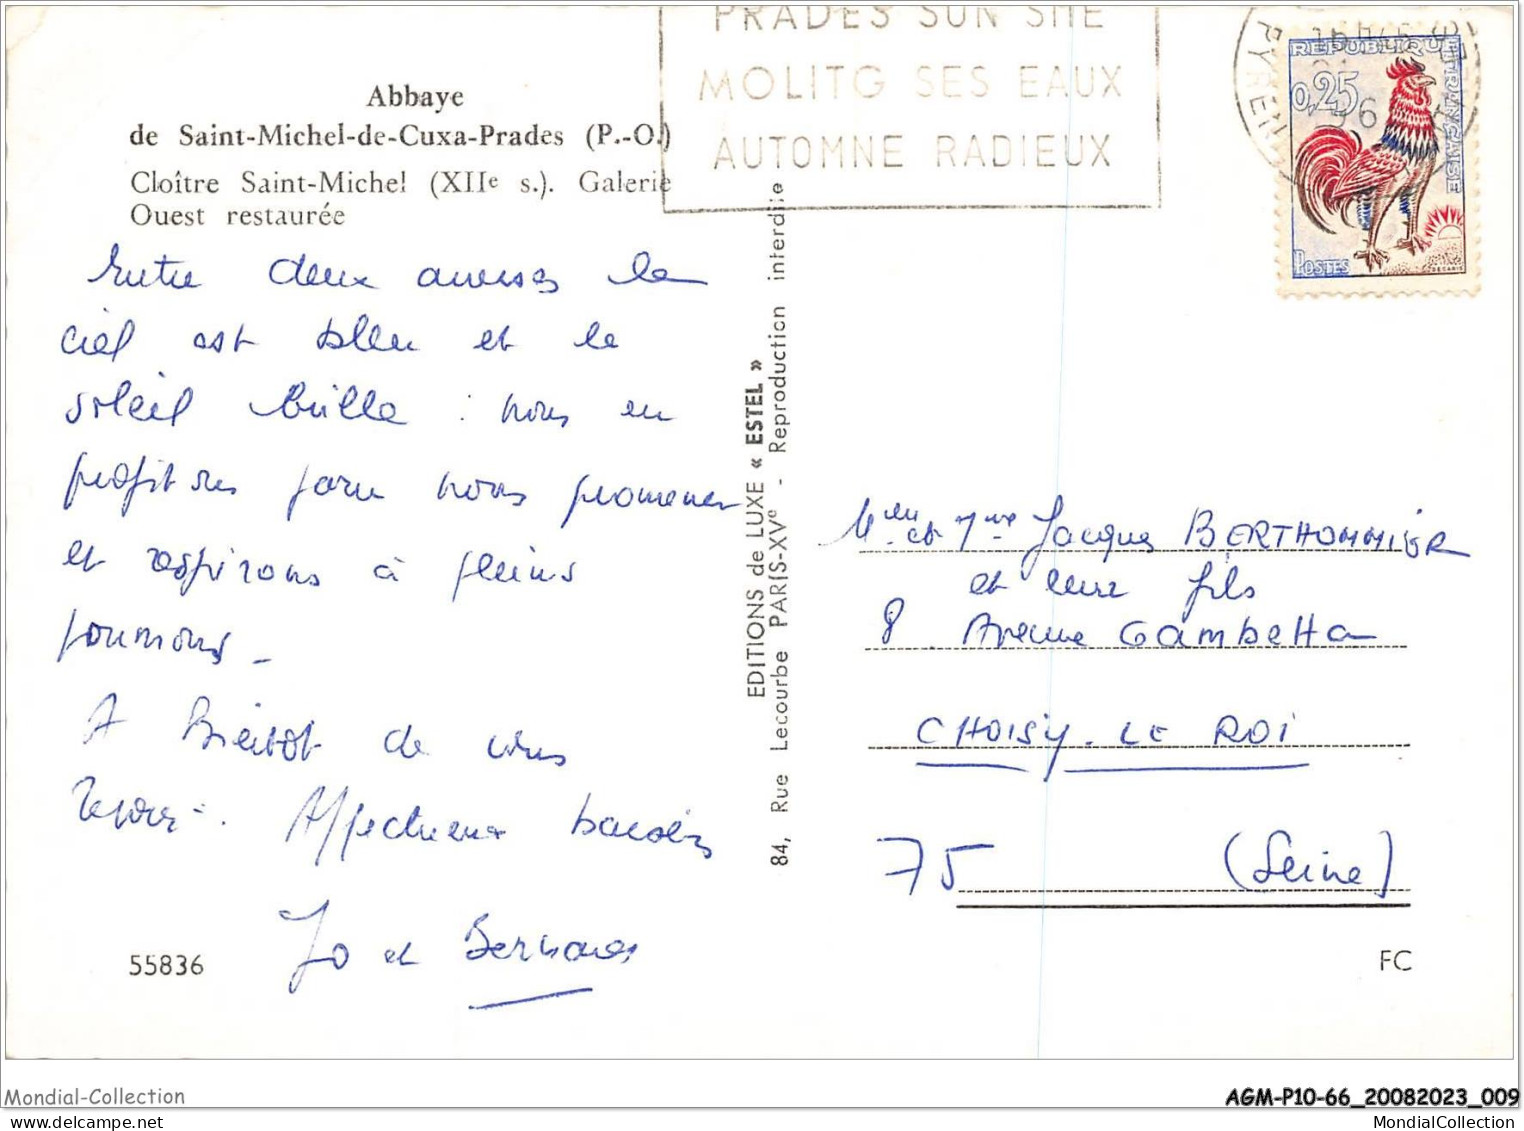 Abbaye
de Saint-Michel-de-Cuxa-Prades (P.-O.)
Cloître Saint-Michel (XIIe s.). Galerie
Ouest restaurée
Entre deux averses le
ciel est bleu et le
soleil brille : nous en
profitons pour nous promener
et respirons à pleins
poumons -
A Bientôt de vous
revoir -. Affectueux baisers
Jo et Bernard
55836
EDITIONS de LUXE « ESTEL »
84, Rue Lecourbe PARIS-XVe - Reproduction interdite
PRADES SON SITE
MOLITG SES EAUX
AUTOMNE RADIEUX
PYREN
REPUBLIQUE FRANÇAISE
0,25
POSTES
DECARIS
et Mme Jacques BERTHOMMIER
et leurs fils
8 Avenue Gambetta
CHOISY. LE ROI
75 (Seine)
FC
Mondial-Collection
AGM-P10-66_20082023_009
MondialCollection.com
MondialCollection